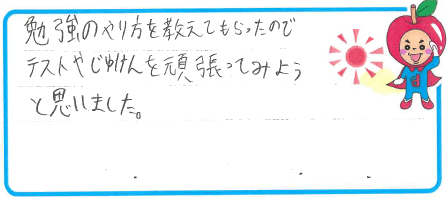 勉強のやり方を教えてもらったので
テストやじゅけんを頑張ってみよう
と思いました。